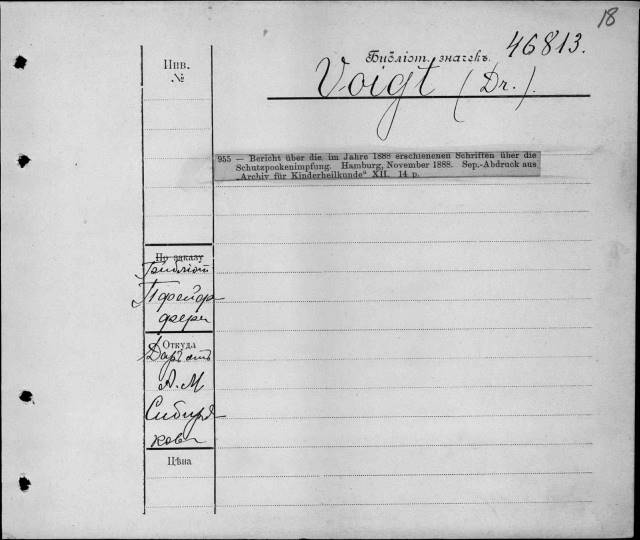 18
Библіот. значекъ. 46813.
Voigt (Dr.).
Инв.
№
955 — Bericht über die im Jahre 1888 erschienenen Schriften über die
Schutzpockenimpfung. Hamburg, November 1888. Sep.-Abdruck aus
„Archiv für Kinderheilkunde“ XII. 14 p.
По заказу
Библіот
Пфейф
фера
Откуда
Даръ отъ
А. М
Сибиря
кова
Цѣна